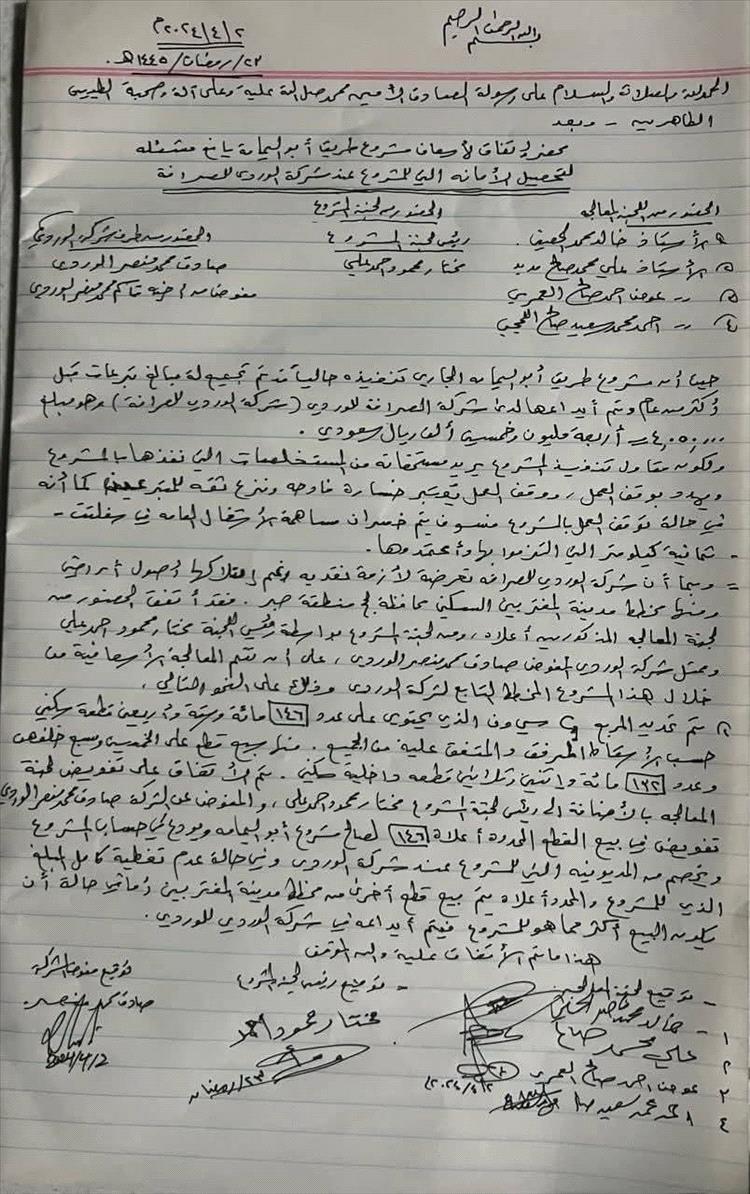 بسم الله الرحمن الرحيم
٢/٤/٢٠٢٤م
٢٣/رمضان/١٤٤٥هـ
الحمدلله والصلاة والسلام على رسولة الصادق الأمين محمد صل الله علية وعلى آلة وصحبة الطيبين
الطاهرين - وبعد
محضر إتفاق لأسعاف مشروع طريق أبو اليمامة يافع مشئله
لتحصيل الأمانه التي للمشروع عند شركة الوردي للصرافة
الحضور من اللجنة المعالجه
١ الأستاذ خالد محمد
٢ الأستاذ علي محمد صالح
٣ // عوض احمد صالح العمري
٤ // احمد محمد سعيد صالح
الحضور من لجنة المشروع
رئيس لجنة المشروع
مختار محمود احمد علي
الحضور من طرف شركة الوردي
صادق محمد منصر الوردي
مفوض من اخيه قاسم محمد منصر الوردي
حيث أن مشروع طريق أبو اليمامه الجاري تنفيذه حالياً قد تم تجميع له مبالغ تبرعات قبل
أكثر من عام وتم أيداعها لدى شركة الصرافة للوردي (شركة الوردي للصرافة) وهو مبلغ
٤,٠٥٠,٠٠٠ أربعة مليون وخمسين ألف ريال سعودي .
ولكون مقاول تنفيذ المشروع يريد مستحقاته من المستخلصات التي نفذها بالمشروع
ويهدد بوقف العمل , ووقف العمل يعتبر خسارة فادحه ونزع ثقه للمتبرعين كما أنه
في حالة توقف العمل بالمشروع فسوف يتم خسران مساهمة الأشغال العامه في سفلتت -
- ثمانية كيلومتر التي التزموا بها وأعتمدوها.
= وبما أن شركة الوردي للصرافه تعرضة لأزمة نقديه رغم إمتلاكها أصول أراضي
ومنها مخطط مدينة المغتربين السكني بمحافظة لحج منطقة صبر . فقد أتفق الحضور من
لجنة المعالجه المذكورين أعلاه , ومن لجنة المشروع بواسطة رئيس اللجنة مختار محمود احمد علي
وممثل شركة الوردي المفوض صادق محمد منصر الوردي , على أن تتم المعالجة الأسعافية من
خلال هذا المشروع المخطط التابع لشركة الوردي وذلك على النحو التالي ,
١) تم تحديد المربع سي ون الذي يحتوي على عدد ١٤٦ مائة وستة وأربعين قطعة سكني
حسب الأسقاط المرفق والمتفق علية من الجميع . منها سبع قطع على الخمسين وسبع خلفهن
وعدد ١٣٢ مائة واثنين وثلاثين قطعه داخلية سكني . تم الأتفاق على تفويض لجنة
المعالجه بالأضافة الى رئيس لجنة المشروع مختار محمود احمد علي , والمفوض عن الشركة صادق محمد منصر الوردي
تفويض في بيع القطع المحدده أعلاه ١٤٦ لصالح مشروع أبو اليمامه ويودع في حساب المشروع
ويخصم من المديونيه التي للمشروع عند شركة الوردي وفي حالة عدم تغطية كامل المبلغ
الذي للمشروع والمحدد أعلاه يتم بيع قطع أخرى من مخطط مدينة المغتربين وفي حالة أن
يكون البيع أكثر مما هو للمشروع فيتم أيداعه في شركة الوردي للوردي .
هذا ما تم الأتفاق علية والله الموفق
- توقيع لجنة المعالجين
١ - خالد محمد
٢ علي محمد صالح
٣ عوض احمد صالح العمري
٢/٤/٢٠٢٤
٤ احمد محمد سعيد صالح
- توقيع رئيس لجنة المشروع
مختار محمود احمد
٢٣/رمضان
توقيع مفوض الشركة
صادق محمد منصر
2024/4/2